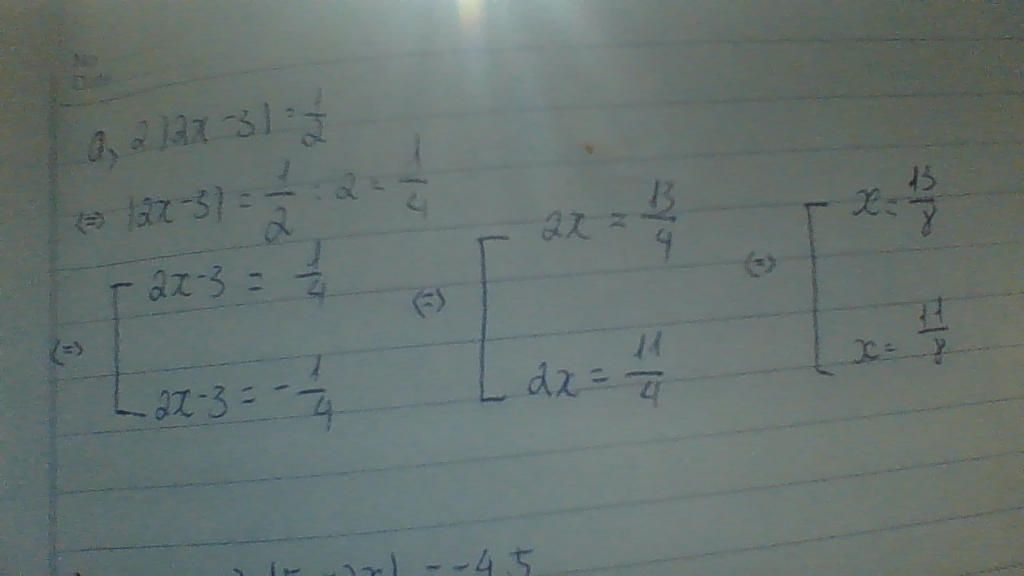 a, 2|2x-3| = 1/2
(=) |2x-3| = 1/2 : 2 = 1/4
(=) [ 2x-3 = 1/4
2x-3 = -1/4
(=) [ 2x = 13/4
2x = 11/4
(=) [ x = 13/8
x = 11/8
= -4,5